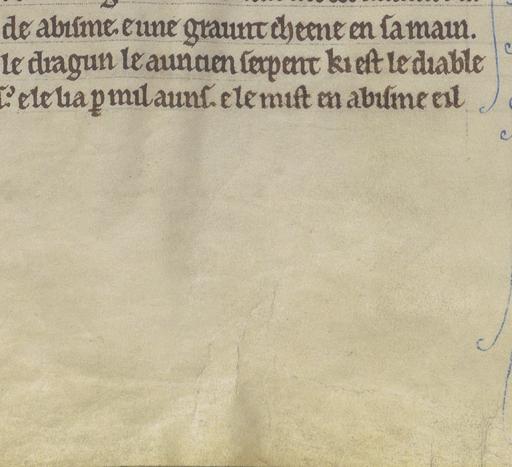 de abisme. e une graunt cheene en sa main.
le dragun le auncien serpent ki est le diable
e le lia ꝑ mil auns. e le mist en abisme e il